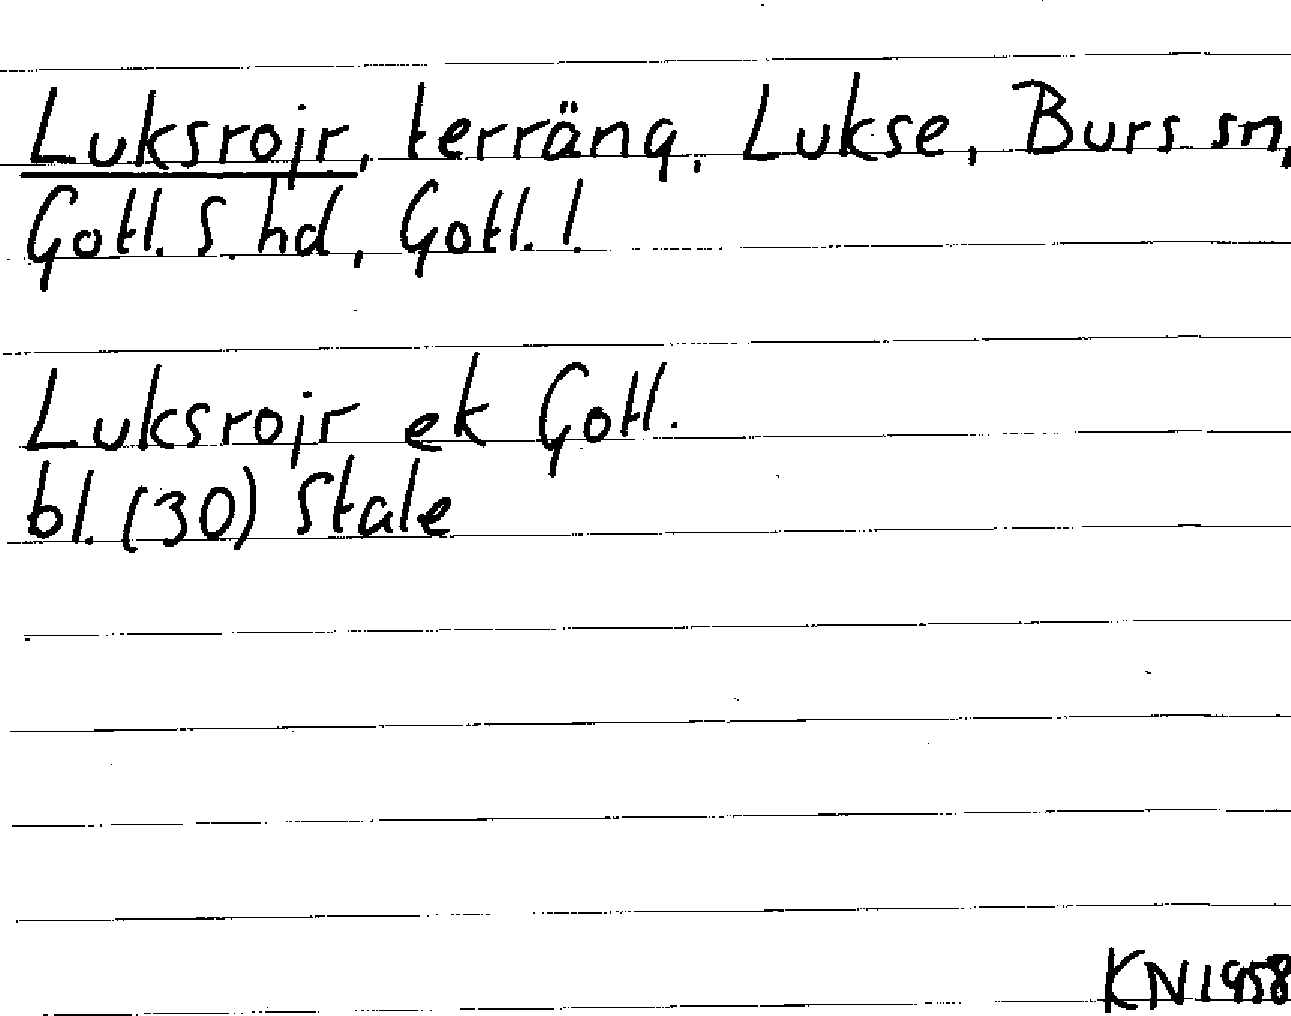 Luksrojr, terräng, Lukse, Burs sn,
Gotl. S. hd, Gotl. l.
Luksrojr ek Gotl.
bl. (30) Stale
KN 1958